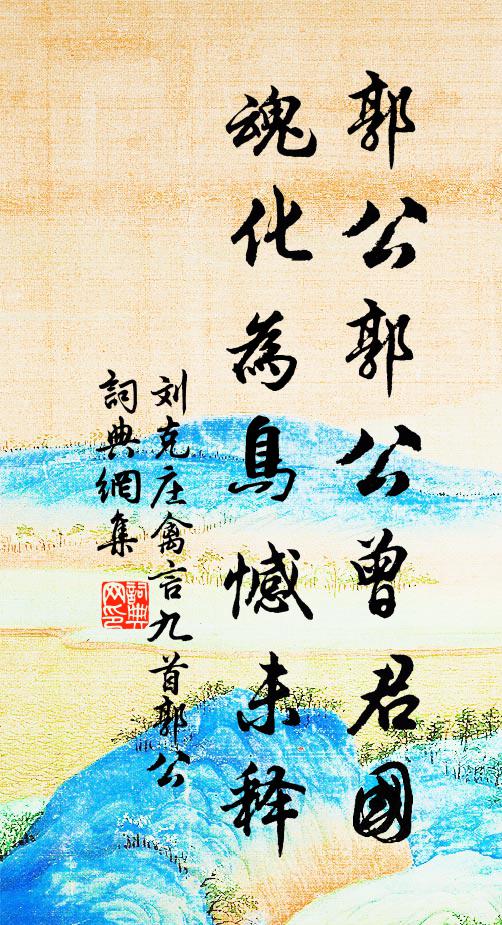 郭公郭公曾君國
魂化為鳥憾未釋
刘克庄禽言九首郭公
詞典網集
詞典
网印